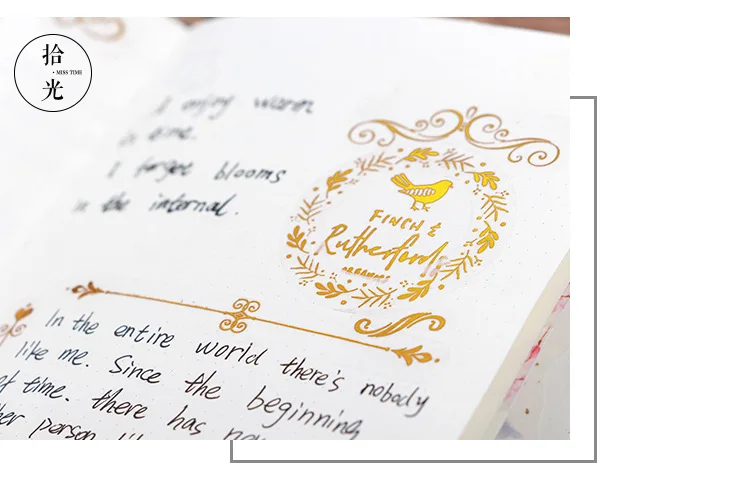 拾
· MISS TIME
光
I enjoy warm
in time.
I forget blooms
in the internal.
FINCH &
Rutherford
In the entire world there's nobody
like me. Since the beginning
of time. there has
person